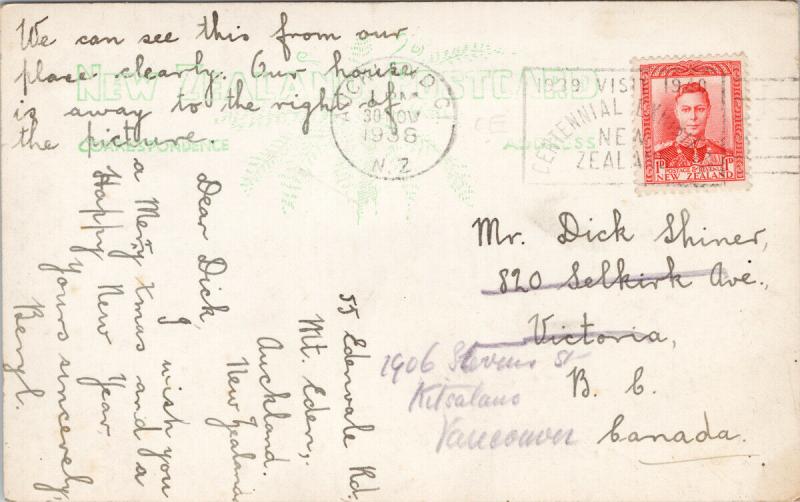 We can see this from our
place clearly. Our house
is away to the right of
the picture.
NEW ZEALAND POSTCARD
CORRESPONDENCE
ADDRESS
30 NOV
1938
N.Z
1939 VISIT 1940
CENTENNIAL
NEW
ZEALAND
1D POSTAGE & REVENUE 1D
NEW ZEALAND
55 Edenvale Rd,
Mt. Eden,
Auckland.
New Zealand
Dear Dick,
I wish you
a Merry Xmas and a
Happy New Year
Yours sincerely,
Beryl.
Mr. Dick Shiner,
820 Selkirk Ave.,
Victoria,
B. C.
Canada.
1906 Stevens St
Kitsalano
Vancouver